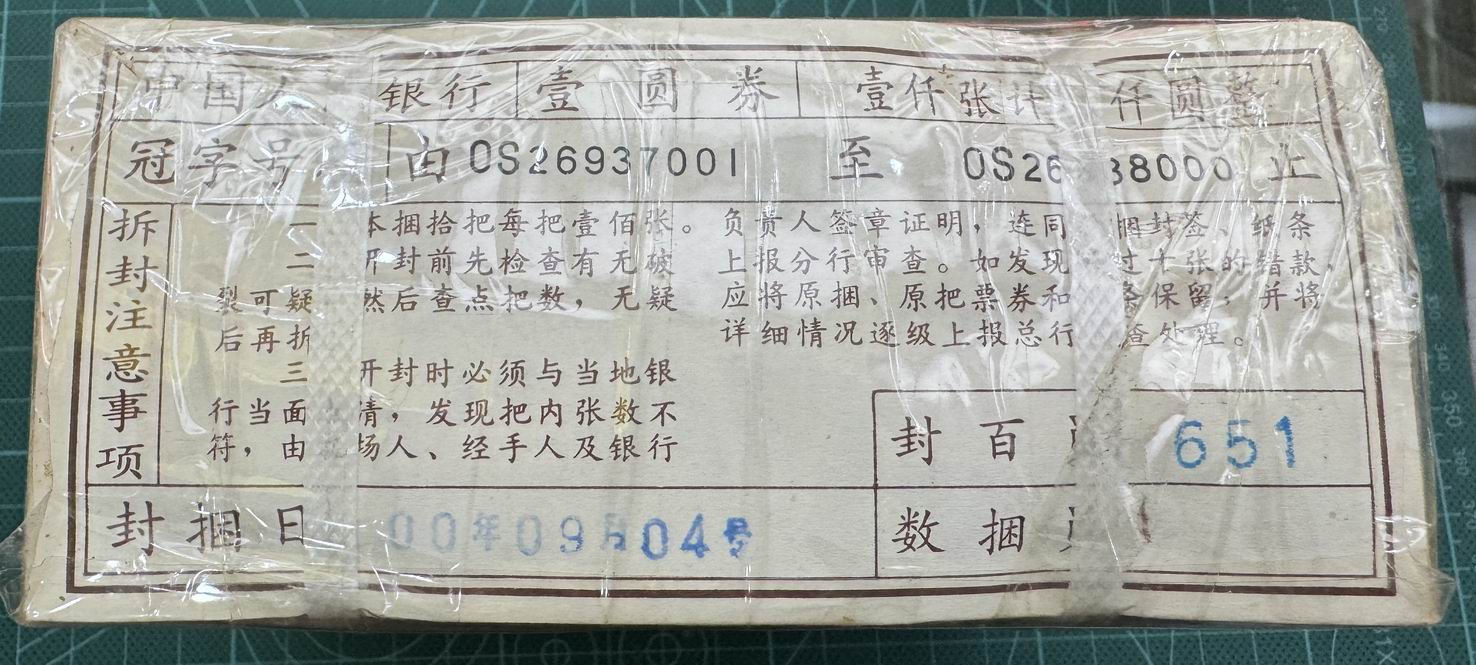 中国人 银行 壹圆券 壹仟张计 仟圆整
冠字号 由 OS26937001 至 OS26 38000 止
拆封注意事项
一 本捆拾把每把壹佰张。
二 开封前先检查有无破
裂可疑 然后查点把数，无疑
后再拆
三 开封时必须与当地银
行当面 清，发现把内张数不
符，由 场人、经手人及银行
负责人签章证明，连同 捆封签、纸条
上报分行审查。如发现 过十张的错款，
应将原捆、原把票券和 条保留；并将
详细情况逐级上报总行 查处理。
封百 651
封捆日 00年09月04号
数捆